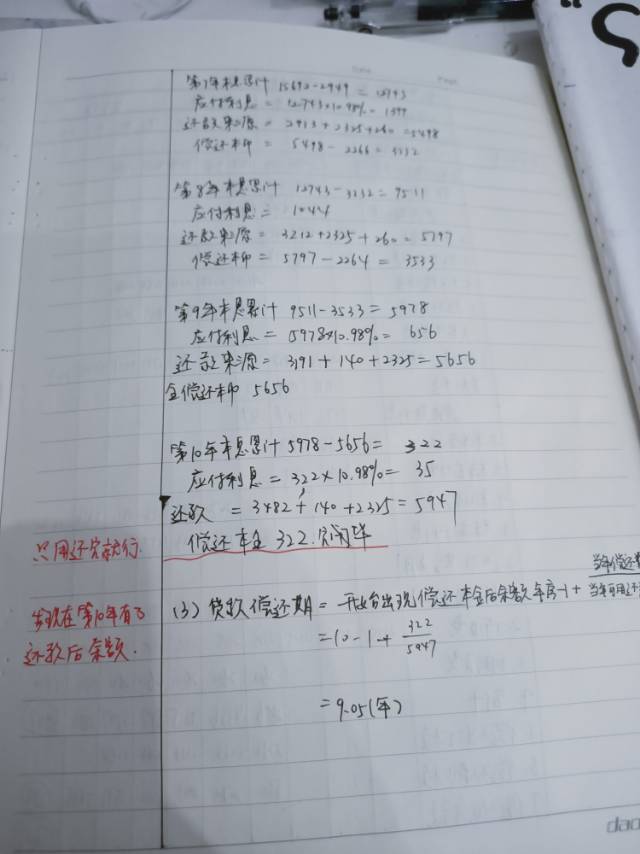 第7年本息累计 15692-2949 = 12743
应付利息 = 12743×10.98% = 1399
还款来源 = 2913+2325+260 = 5498
偿还本币 = 5498-2266 = 3232
第8年本息累计 12743-3232 = 9511
应付利息 = 1044
还款来源 = 3212+2325+260 = 5797
偿还本币 = 5797-2264 = 3533
第9年本息累计 9511-3533 = 5978
应付利息 = 5978×10.98% = 656
还款来源 = 3191+140+2325 = 5656
全偿还本币 5656
第10年本息累计 5978-5656 = 322
应付利息 = 322×10.98% = 35
还款 = 3482+140+2325 = 5947
偿还本金 322.
只用还贷就行.
发现在第10年有了
还款后余额.
(3) 贷款偿还期 = 开始出现偿还本金后余数年序-1+ 当年偿还 / 当年可用还
= 10-1+ 322/5947
= 9.05(年)